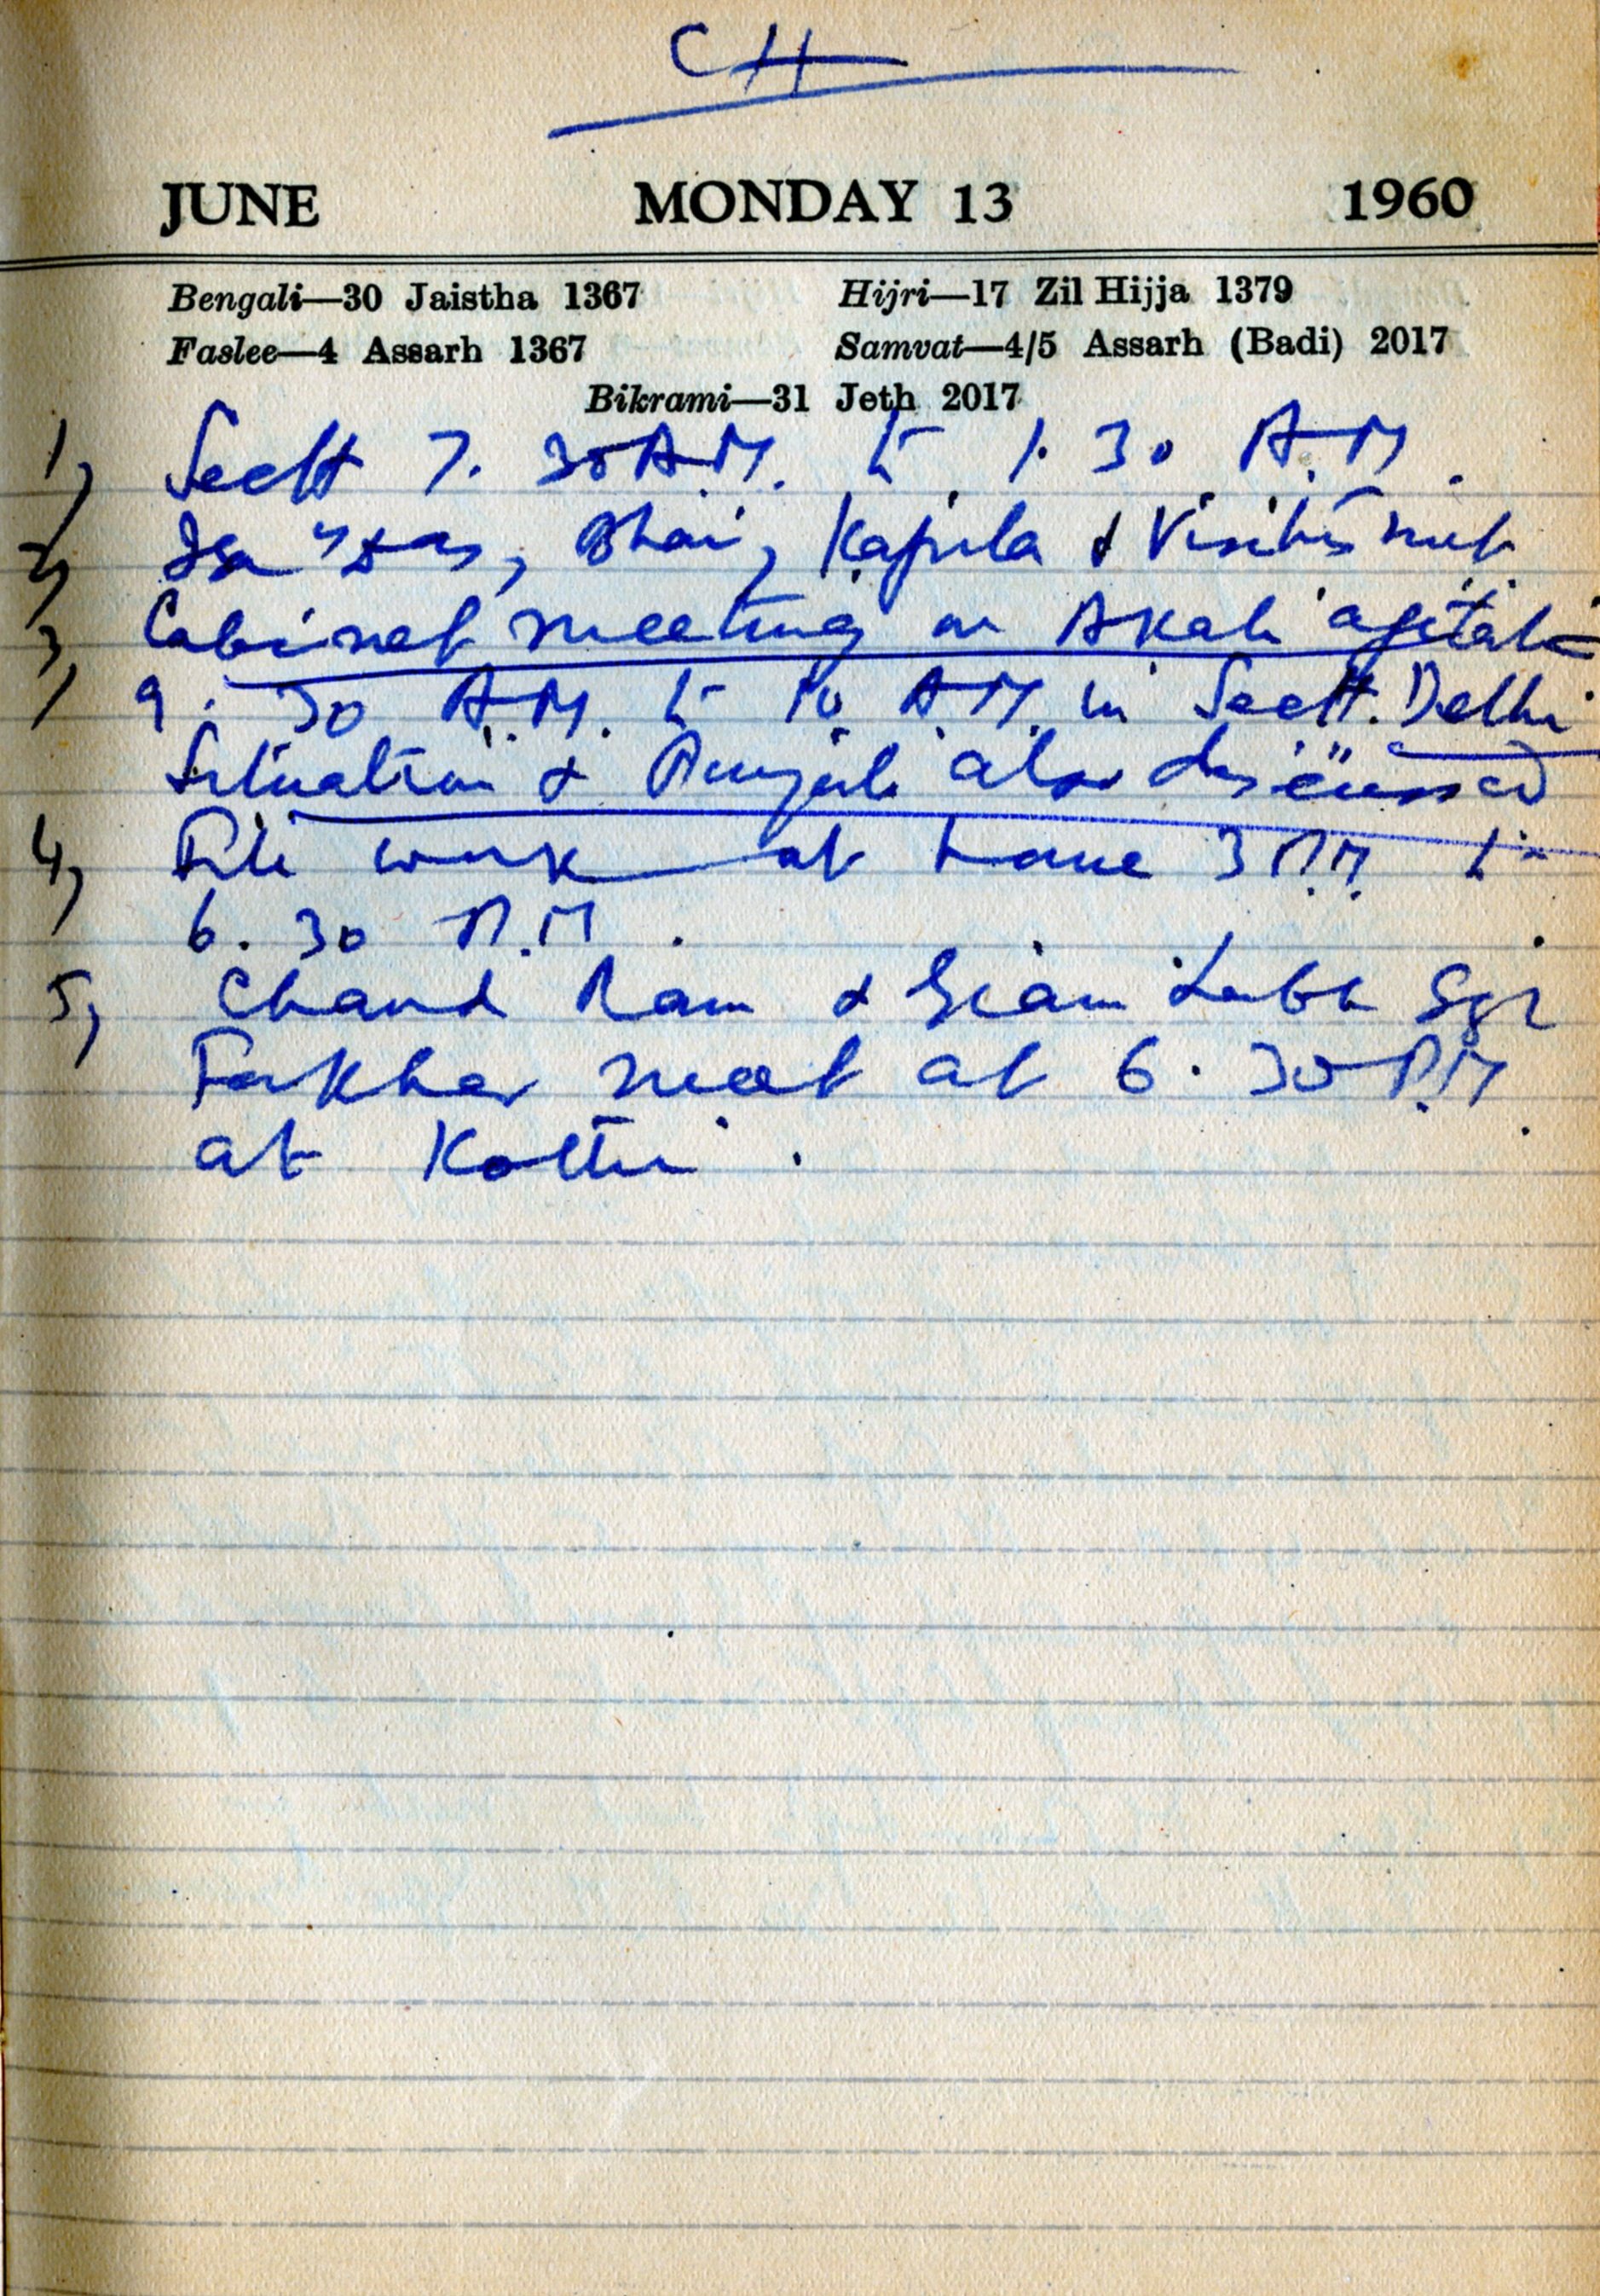 CH
JUNE MONDAY 13 1960
Bengali—30 Jaistha 1367 Hijri—17 Zil Hijja 1379
Faslee—4 Assarh 1367 Samvat—4/5 Assarh (Badi) 2017
Bikrami—31 Jeth 2017
1, Sectt 7. 30 A.M. to 1. 30 A.M.
2, Bhai, Kapila & Visitors met
3, Cabinet meeting on Akali agitation
9. 30 A.M. to 10 A.M. in Sectt. Delhi
Situation & Punjab also discussed
4, File work at home 3 P.M. to
6. 30 P.M.
5, Chand Ram & Gian Labh Sgr
meet at 6. 30 P.M.
at Kothi.